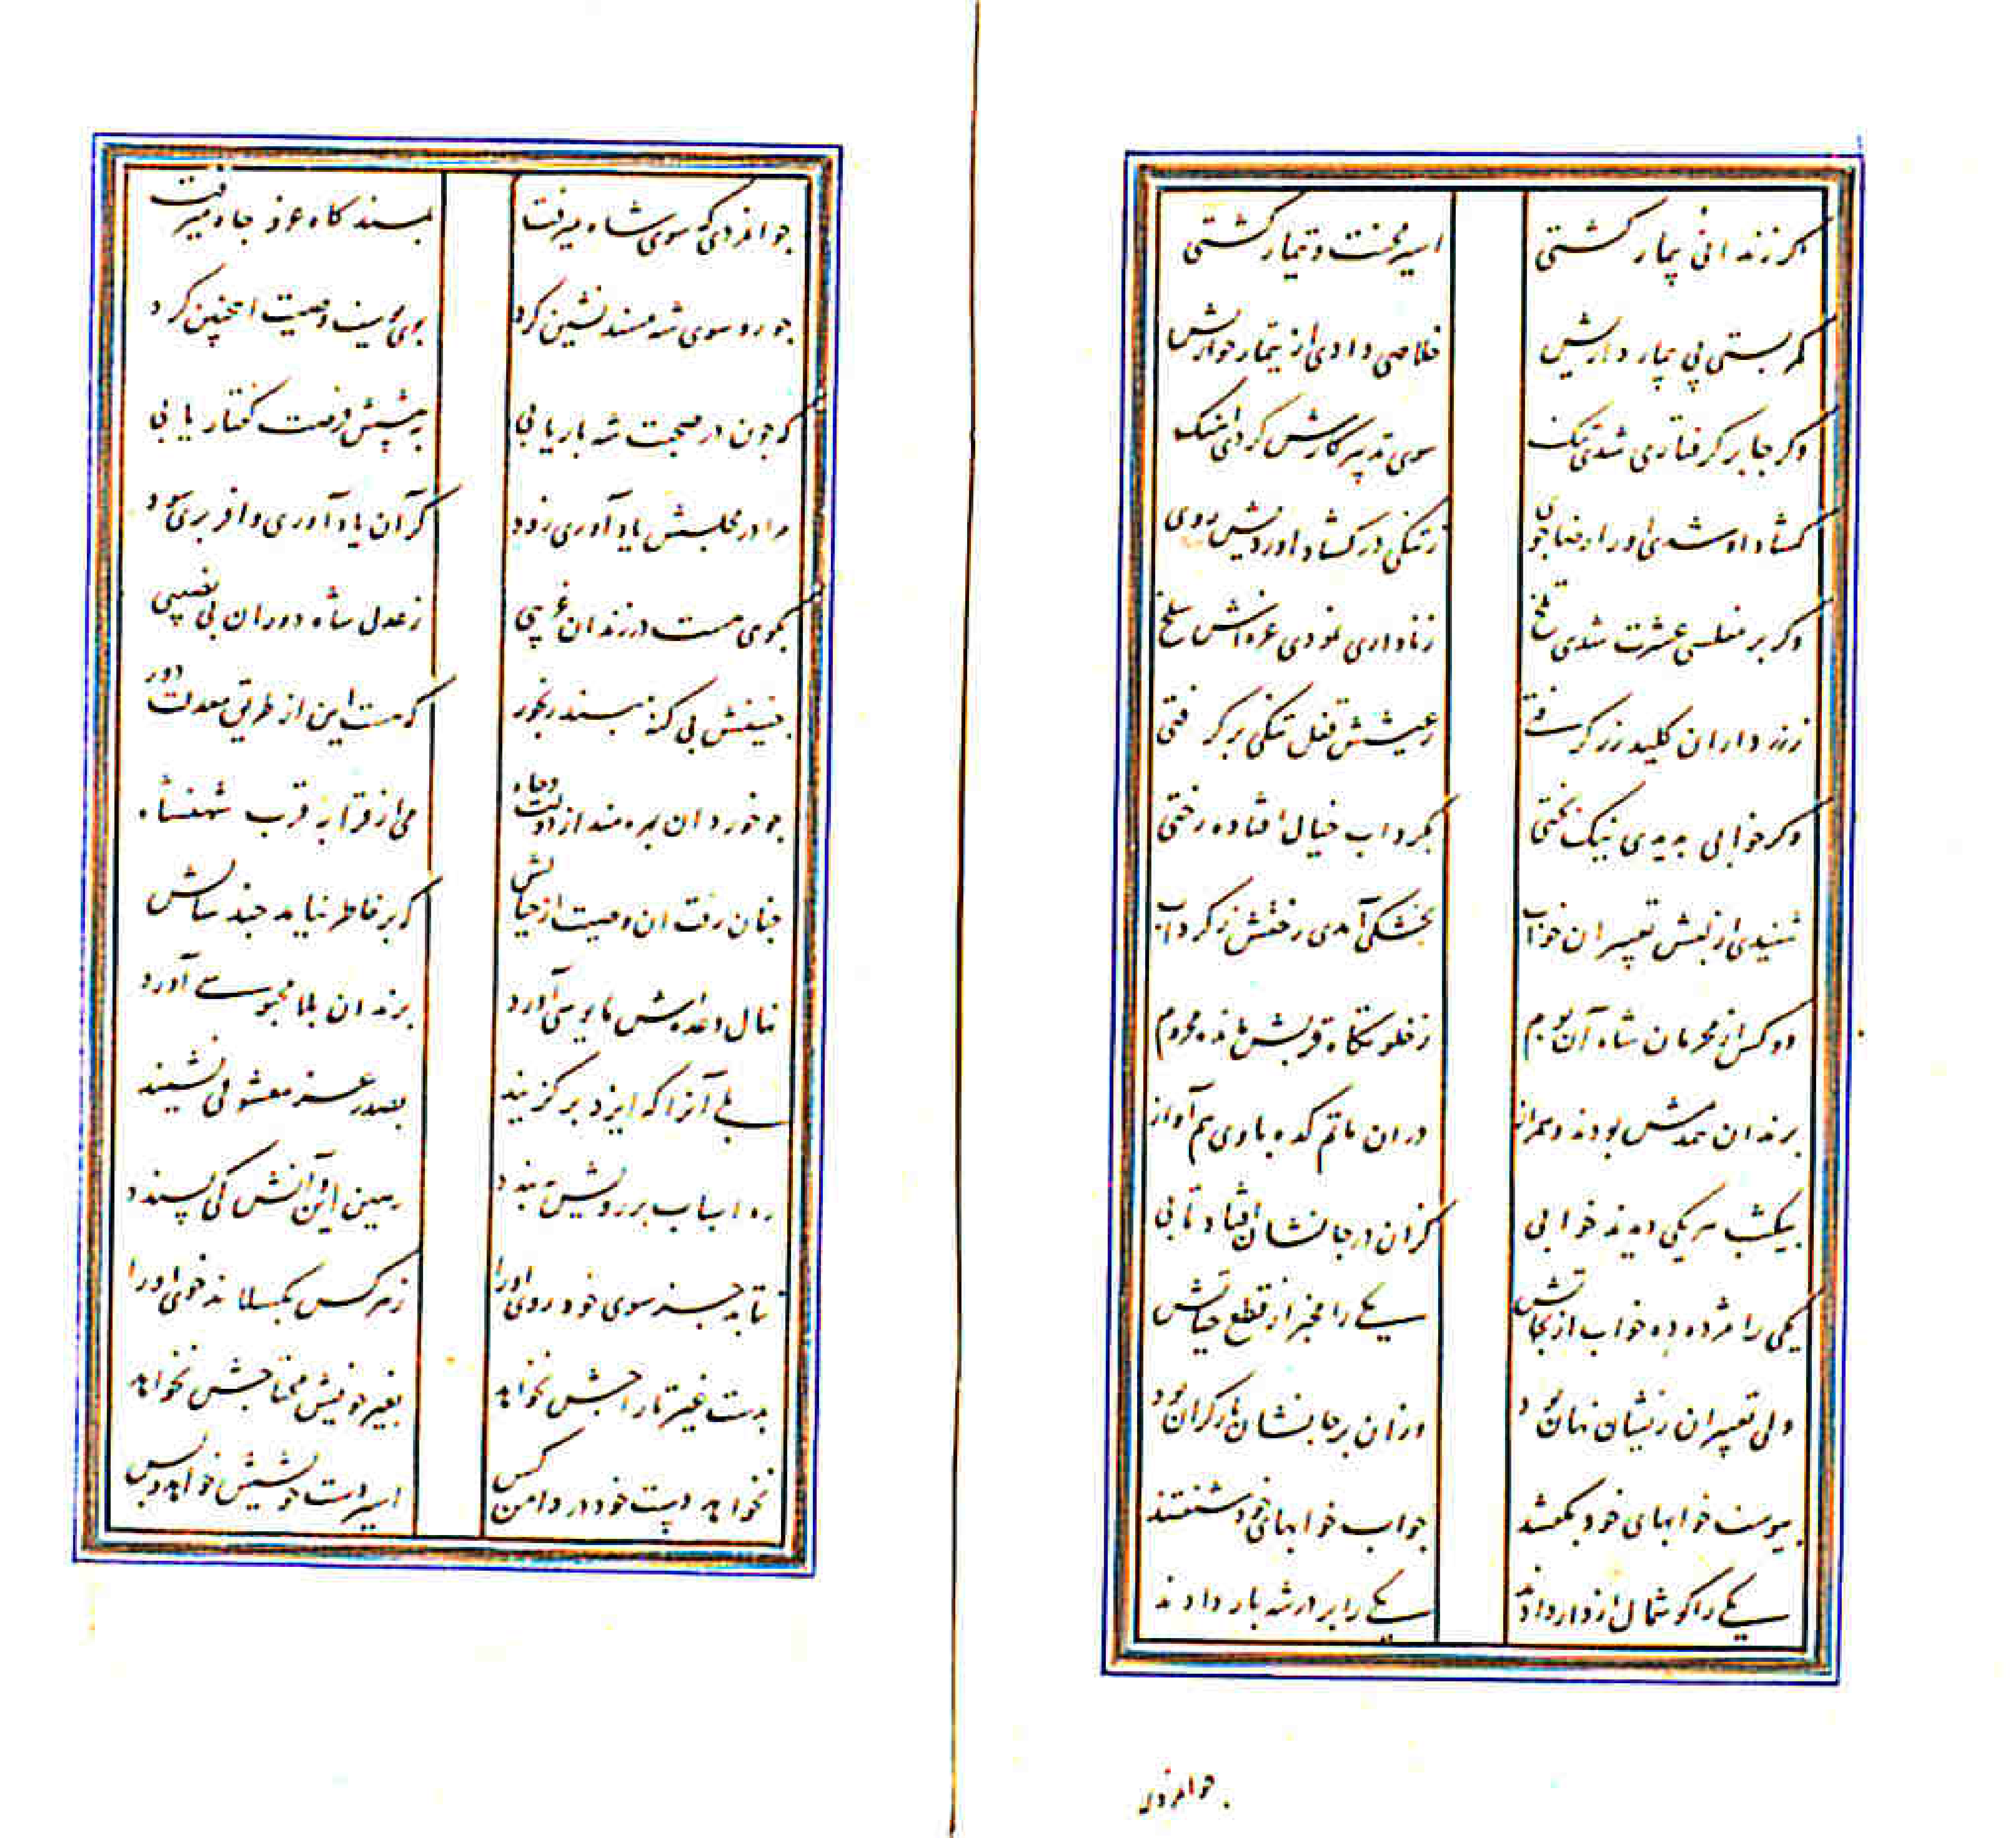 اگر زندانی بیمار گشتی اسیر محنت و تیمار گشتی
کمر بستی پی بیمار داریش خلاصی دادی از تیمار خواریش
وگر جا بر گرفتاری شدی تنگ سوی تدبیر کارش کردی آهنگ
گشاده رو شدی او را رضا جوی ز تنگی در گشاد آوردیش روی
وگر بر مفلسی عشرت شدی تلخ ز ناداری نمودی غره‌اش سلخ
ز زرداران کلید زر گرفتی ز عیشش قفل تنگی برگرفتی
وگر خوابی بدیدی نیک بختی بگرداب خیال افتاده رختی
شنیدی از لبش تعبیر آن خواب بخشکی آمدی رختش ز گرداب
دو کس از محرمان شاه آن بوم ز خلوتگاه قربش مانده محروم
بزندان همدمش بودند و همراز در آن ماتمکده با وی هم آواز
بیکشب هر یکی دیدند خوابی کزان در جانشان افتاد تابی
یکی را مژده ده خواب از نجاتش یکی را مخبر از قطع حیاتش
ولی تعبیر آن زیشان نهان بود وزان بر جانشان بار گران بود
بیوسف خوابهای خود بگفتند جواب خوابهای خود شنفتند
یکی را گوشمال از دار دادند یکی را بر در شه بار دادند
جوانمردی
جوانمردی که سوی شاه میرفت بمسند گاه عز و جاه میرفت
چو رو سوی شه مسند نشین کرد بوی یوسف وصیت اینچنین کرد
که چون در صحبت شه بار یابی به پیشش فرصت گفتار یابی
مرا در مجلسش یاد آوری زود کز آن یاد آوری وافر بری سود
بگوی هست در زندان غریبی ز عدل شاه دوران بی نصیبی
چنینش بی گنه مپسند رنجور که هست این از طریق معدلت دور
چو خورد آن بهره‌مند از دولت و جاه می از قرابه قرب شهنشاه
چنان رفت آن وصیت از خیالش که بر خاطر نیامد چند سالش
نهال وعده‌اش مایوسی آورد بزندان بلا محبوسی آورد
بلی آنرا که ایزد برگزیند بصدر عز معشوقی نشیند
ره اسباب بر رویش ببندد رهین این و آنش کی پسندد
نتابد جز سوی خود روی او را ز هر کس بگسلاند خوی او را
بدست غیر تاراجش نخواهد بغیر خویش محتاجش نخواهد
نخواهد دست خود در دامن کس اسیر دست خویشش خواهد و بس